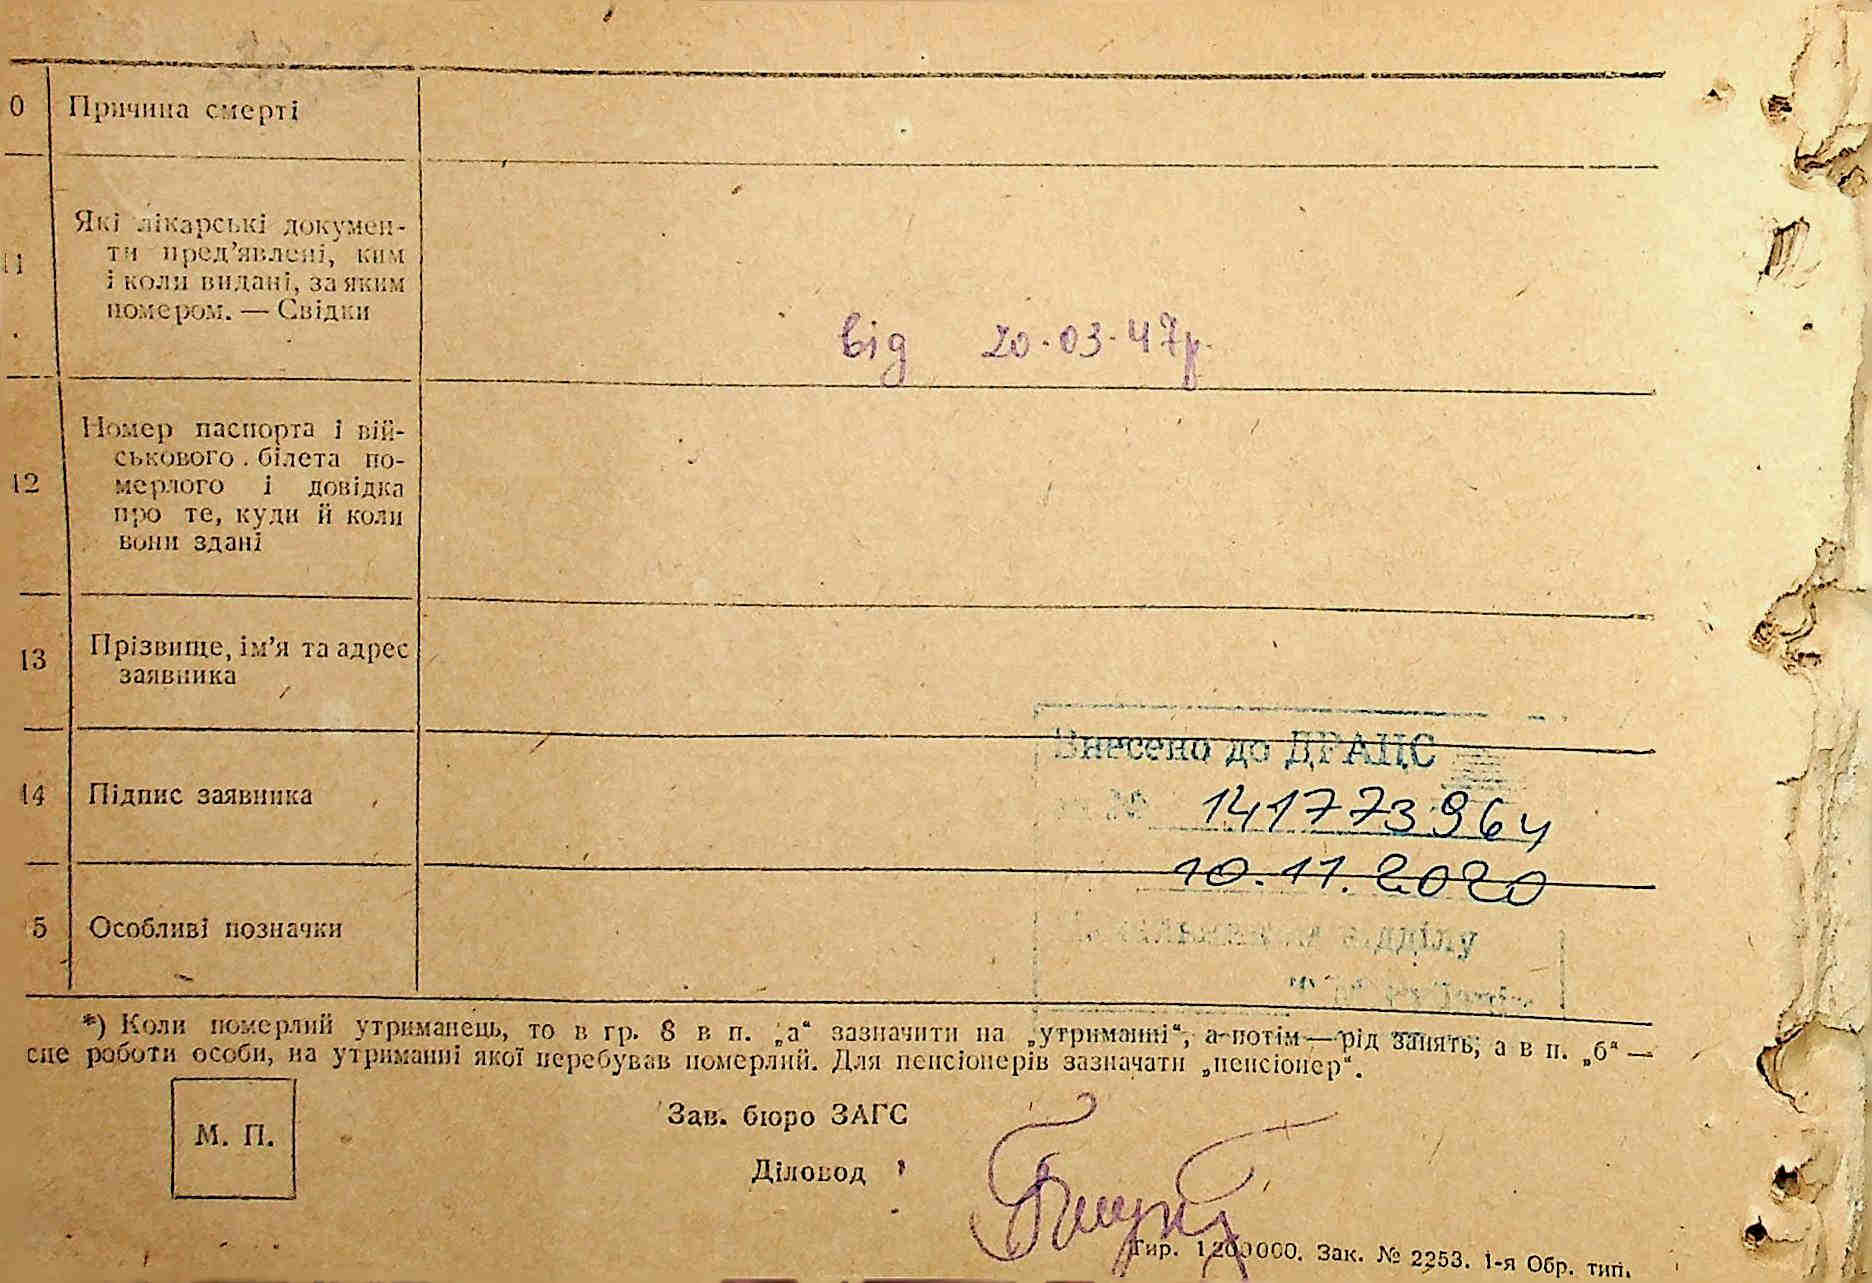 0 Причина смерті
11 Які лікарські докумен-
ти пред’явлені, ким
і коли видані, за яким
номером. — Свідки
від 20.03.47р.
12 Номер паспорта і вій-
ськового білета по-
мерлого і довідка
про те, куди й коли
вони здані
13 Прізвище, ім’я та адрес
заявника
Внесено до ДРАЦС
14 Підпис заявника
141773964
10.11.2020
5 Особливі позначки
відділу
*) Коли померлий утриманець, то в гр. 8 в п. „а“ зазначити на „утриманні“, а потім — рід занять, а в п. „б“ —
сце роботи особи, на утриманні якої перебував померлий. Для пенсіонерів зазначати „пенсіонер“.
М. П.
Зав. бюро ЗАГС
Діловод
Тир. 1200000. Зак. № 2253. 1-я Обр. тип.